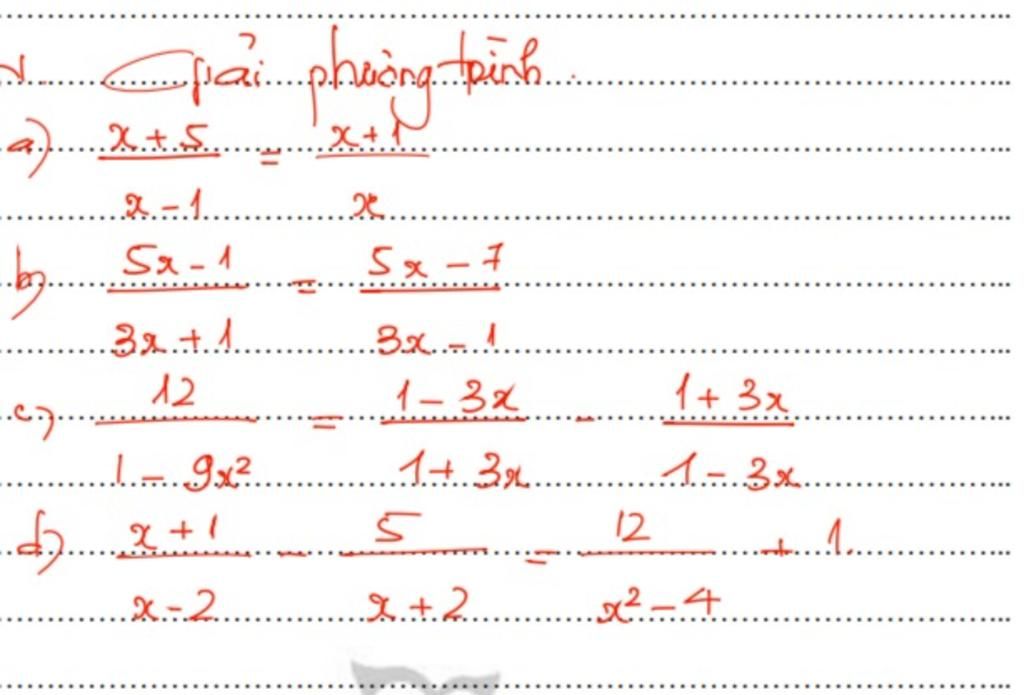 1. Giải phương trình.
a) \frac{x+5}{x-1} = \frac{x+1}{x}
b) \frac{5x-1}{3x+1} = \frac{5x-7}{3x-1}
c) \frac{12}{1-9x^2} = \frac{1-3x}{1+3x} - \frac{1+3x}{1-3x}
d) \frac{x+1}{x-2} - \frac{5}{x+2} = \frac{12}{x^2-4} + 1.